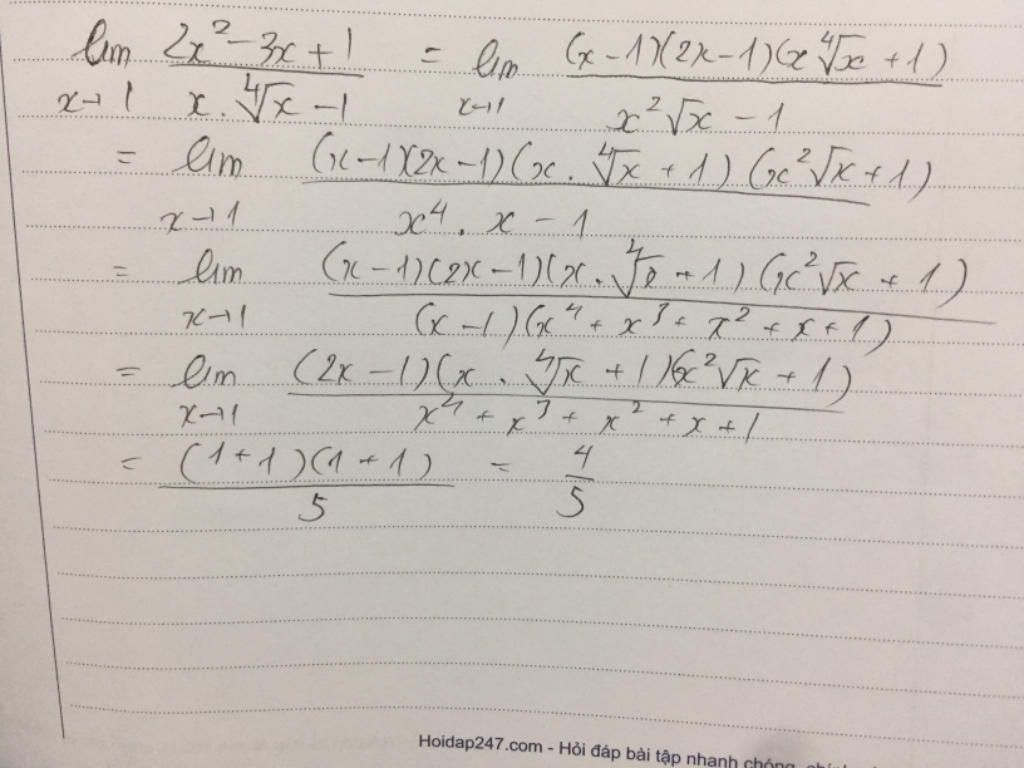 lim 2x² - 3x + 1 / x . ∜x - 1 = lim (x - 1)(2x - 1)(x ∜x + 1) / x²√x - 1
x→1 x→1
= lim (x - 1)(2x - 1)(x . ∜x + 1)(x²√x + 1) / x⁴ . x - 1
x→1
= lim (x - 1)(2x - 1)(x . ∜x + 1)(x²√x + 1) / (x - 1)(x⁴ + x³ + x² + x + 1)
x→1
= lim (2x - 1)(x . ∜x + 1)(x²√x + 1) / x⁴ + x³ + x² + x + 1
x→1
= (1 + 1)(1 + 1) / 5 = 4/5
Hoidap247.com - Hỏi đáp bài tập nhanh chóng, chính